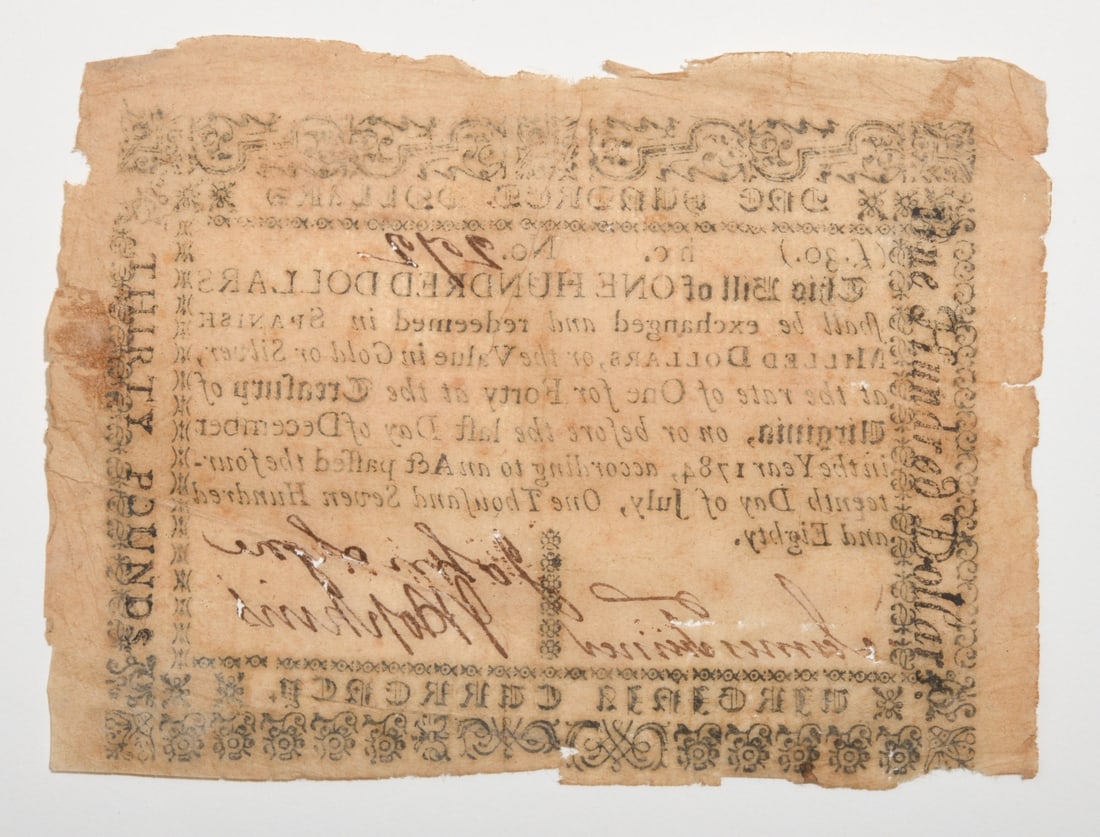 ONE HUNDRED DOLLARS
(£.30.) No. 2972
This Bill of ONE HUNDRED DOLLARS
ſhall be exchanged and redeemed in SPANISH
MILLED DOLLARS, or the Value in Gold or Silver,
at the rate of One for Forty at the Treaſury of
Virginia, on or before the laſt Day of December
in the Year 1784, according to an Act paſſed the four-
teenth Day of July, One Thouſand Seven Hundred
and Eighty.
John Lyne
J Hopkins
James
VIRGINIA CURRENCY.
One Hundred Dollars.
THIRTY POUNDS